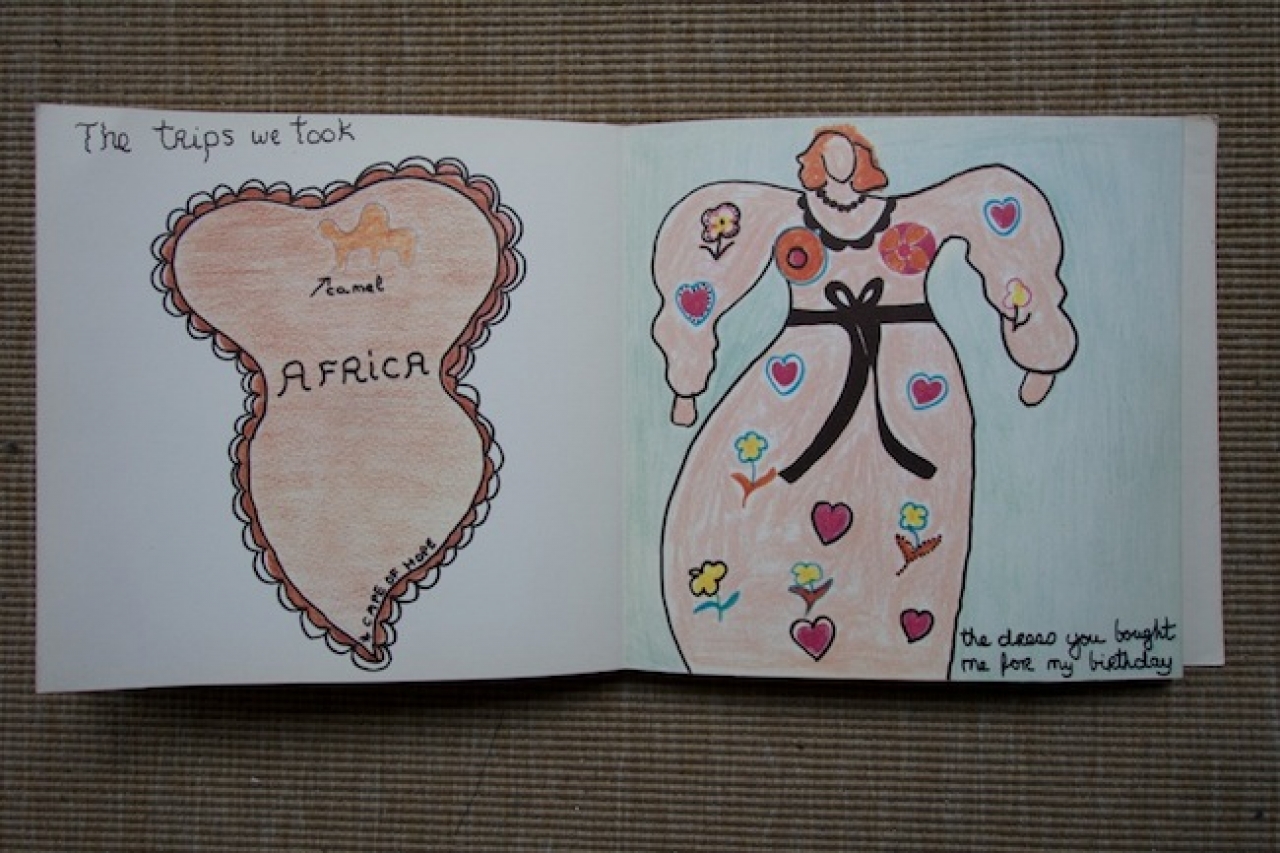 The trips we took
camel
AFRiCA
CAPE OF HOPE
the dress you bought
me for my birthday